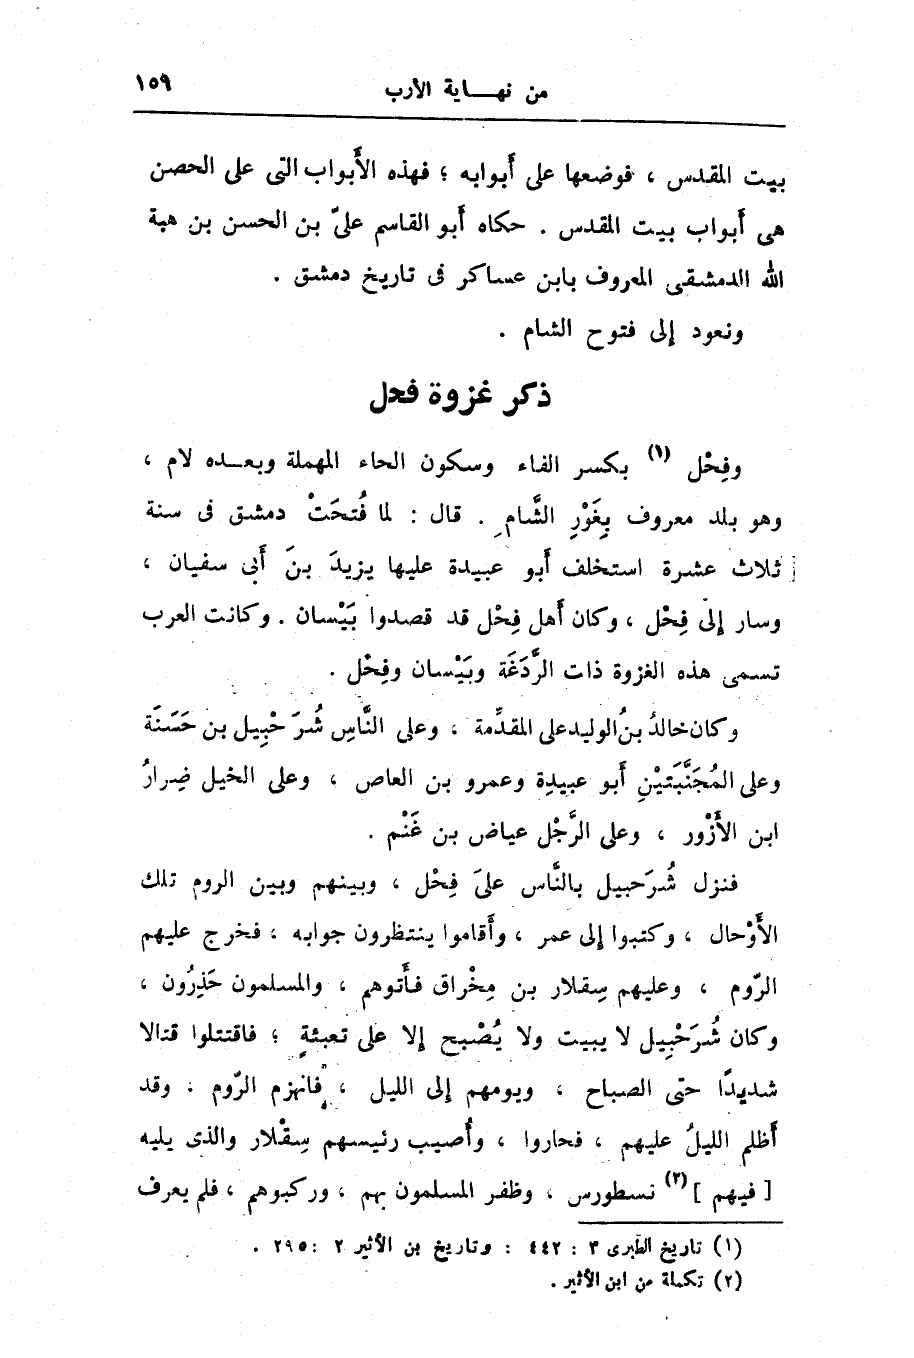 من نهـــاية الأرب ١٥٩
بيت المقدس ، فوضعها على أَبوابه ؛ فهذه الأَبواب التى على الحصن
هى أَبواب بيت المقدس . حكاه أبو القاسم علىّ بن الحسن بن هبة
الله الدمشقى المعروف بابن عساكر فى تاريخ دمشق .
ونعود إلى فتوح الشام .
ذكر غزوة فحل
وفِحْل (١) بكسر الفاء وسكون الحاء المهملة وبعـــده لام ،
وهو بلد معروف بِغَوْرِ الشَّام . قال : لما فُتحَتْ دمشق فى سنة
ثلاث عشرة استخلف أَبو عبيدة عليها يزيدَ بنَ أَبى سفيان ،
وسار إلى فِحْل ، وكان أَهل فِحْل قد قصدوا بَيْسان . وكانت العرب
تسمى هذه الغزوة ذات الرَّدَغَة وبَيْسان وفِحْل .
وكان خالدُ بنُ الوليد على المقدِّمة ، وعلى النَّاسِ شُرَحْبِيل بن حَسَنَة
وعلى المُجَنَّبَتَيْنِ أَبو عبيدة وعمرو بن العاص ، وعلى الخيل ضِرارُ
ابن الأَزْور ، وعلى الرَّجْل عياض بن غَنْم .
فنزل شُرَحبيل بالنَّاس علىَ فِحْل ، وبينهم وبين الروم تلك
الأَوْحال ، وكتبوا إلى عمر ، وأَقاموا ينتظرون جوابه ، فخرج عليهم
الرّوم ، وعليهم سِقلار بن مِخْراق فأَتوهم ، والمسلمون حَذِرُون ،
وكان شُرَحْبِيل لا يبيت ولا يُصْبح إلا على تعبئةٍ ؛ فاقتتلوا قتالا
شديدًا حتى الصباح ، ويومهم إلى الليل ، فانهزم الرّوم . وقد
أَظلم الليلُ عليهم ، فحاروا ، وأُصيب رئيسهم سِقْلار والذى يليه
[ فيهم ] (٢) نسطورس ، وظفر المسلمون بهم ، وركبوهم ، فلم يعرف
(١) تاريخ الطبرى ٣ : ٤٤٢ : وتاريخ بن الأثير ٢ : ٢٩٥ .
(٢) تكملة من ابن الأثير .